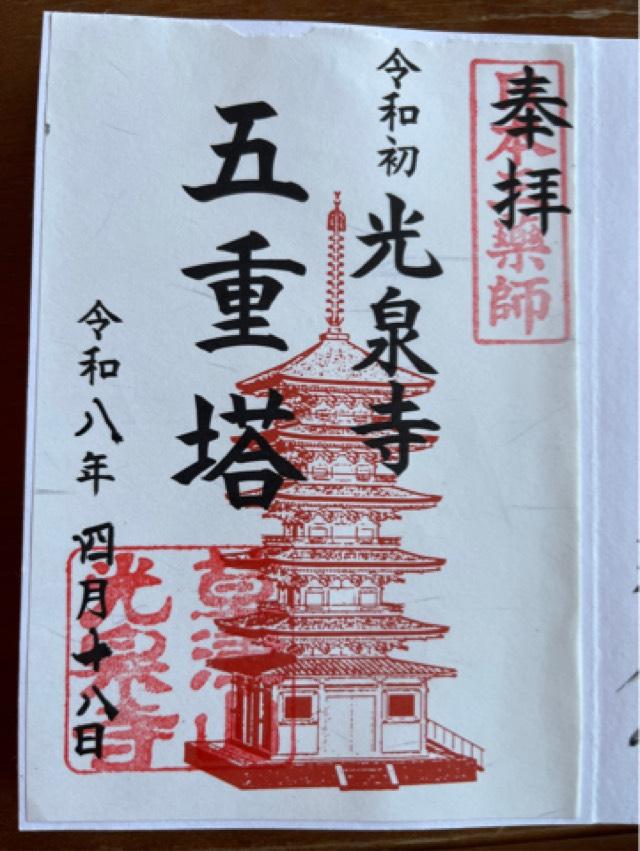 奉拝
藥師
令和初
光泉寺
五重塔
令和八年 四月十八日
草津山
光泉寺